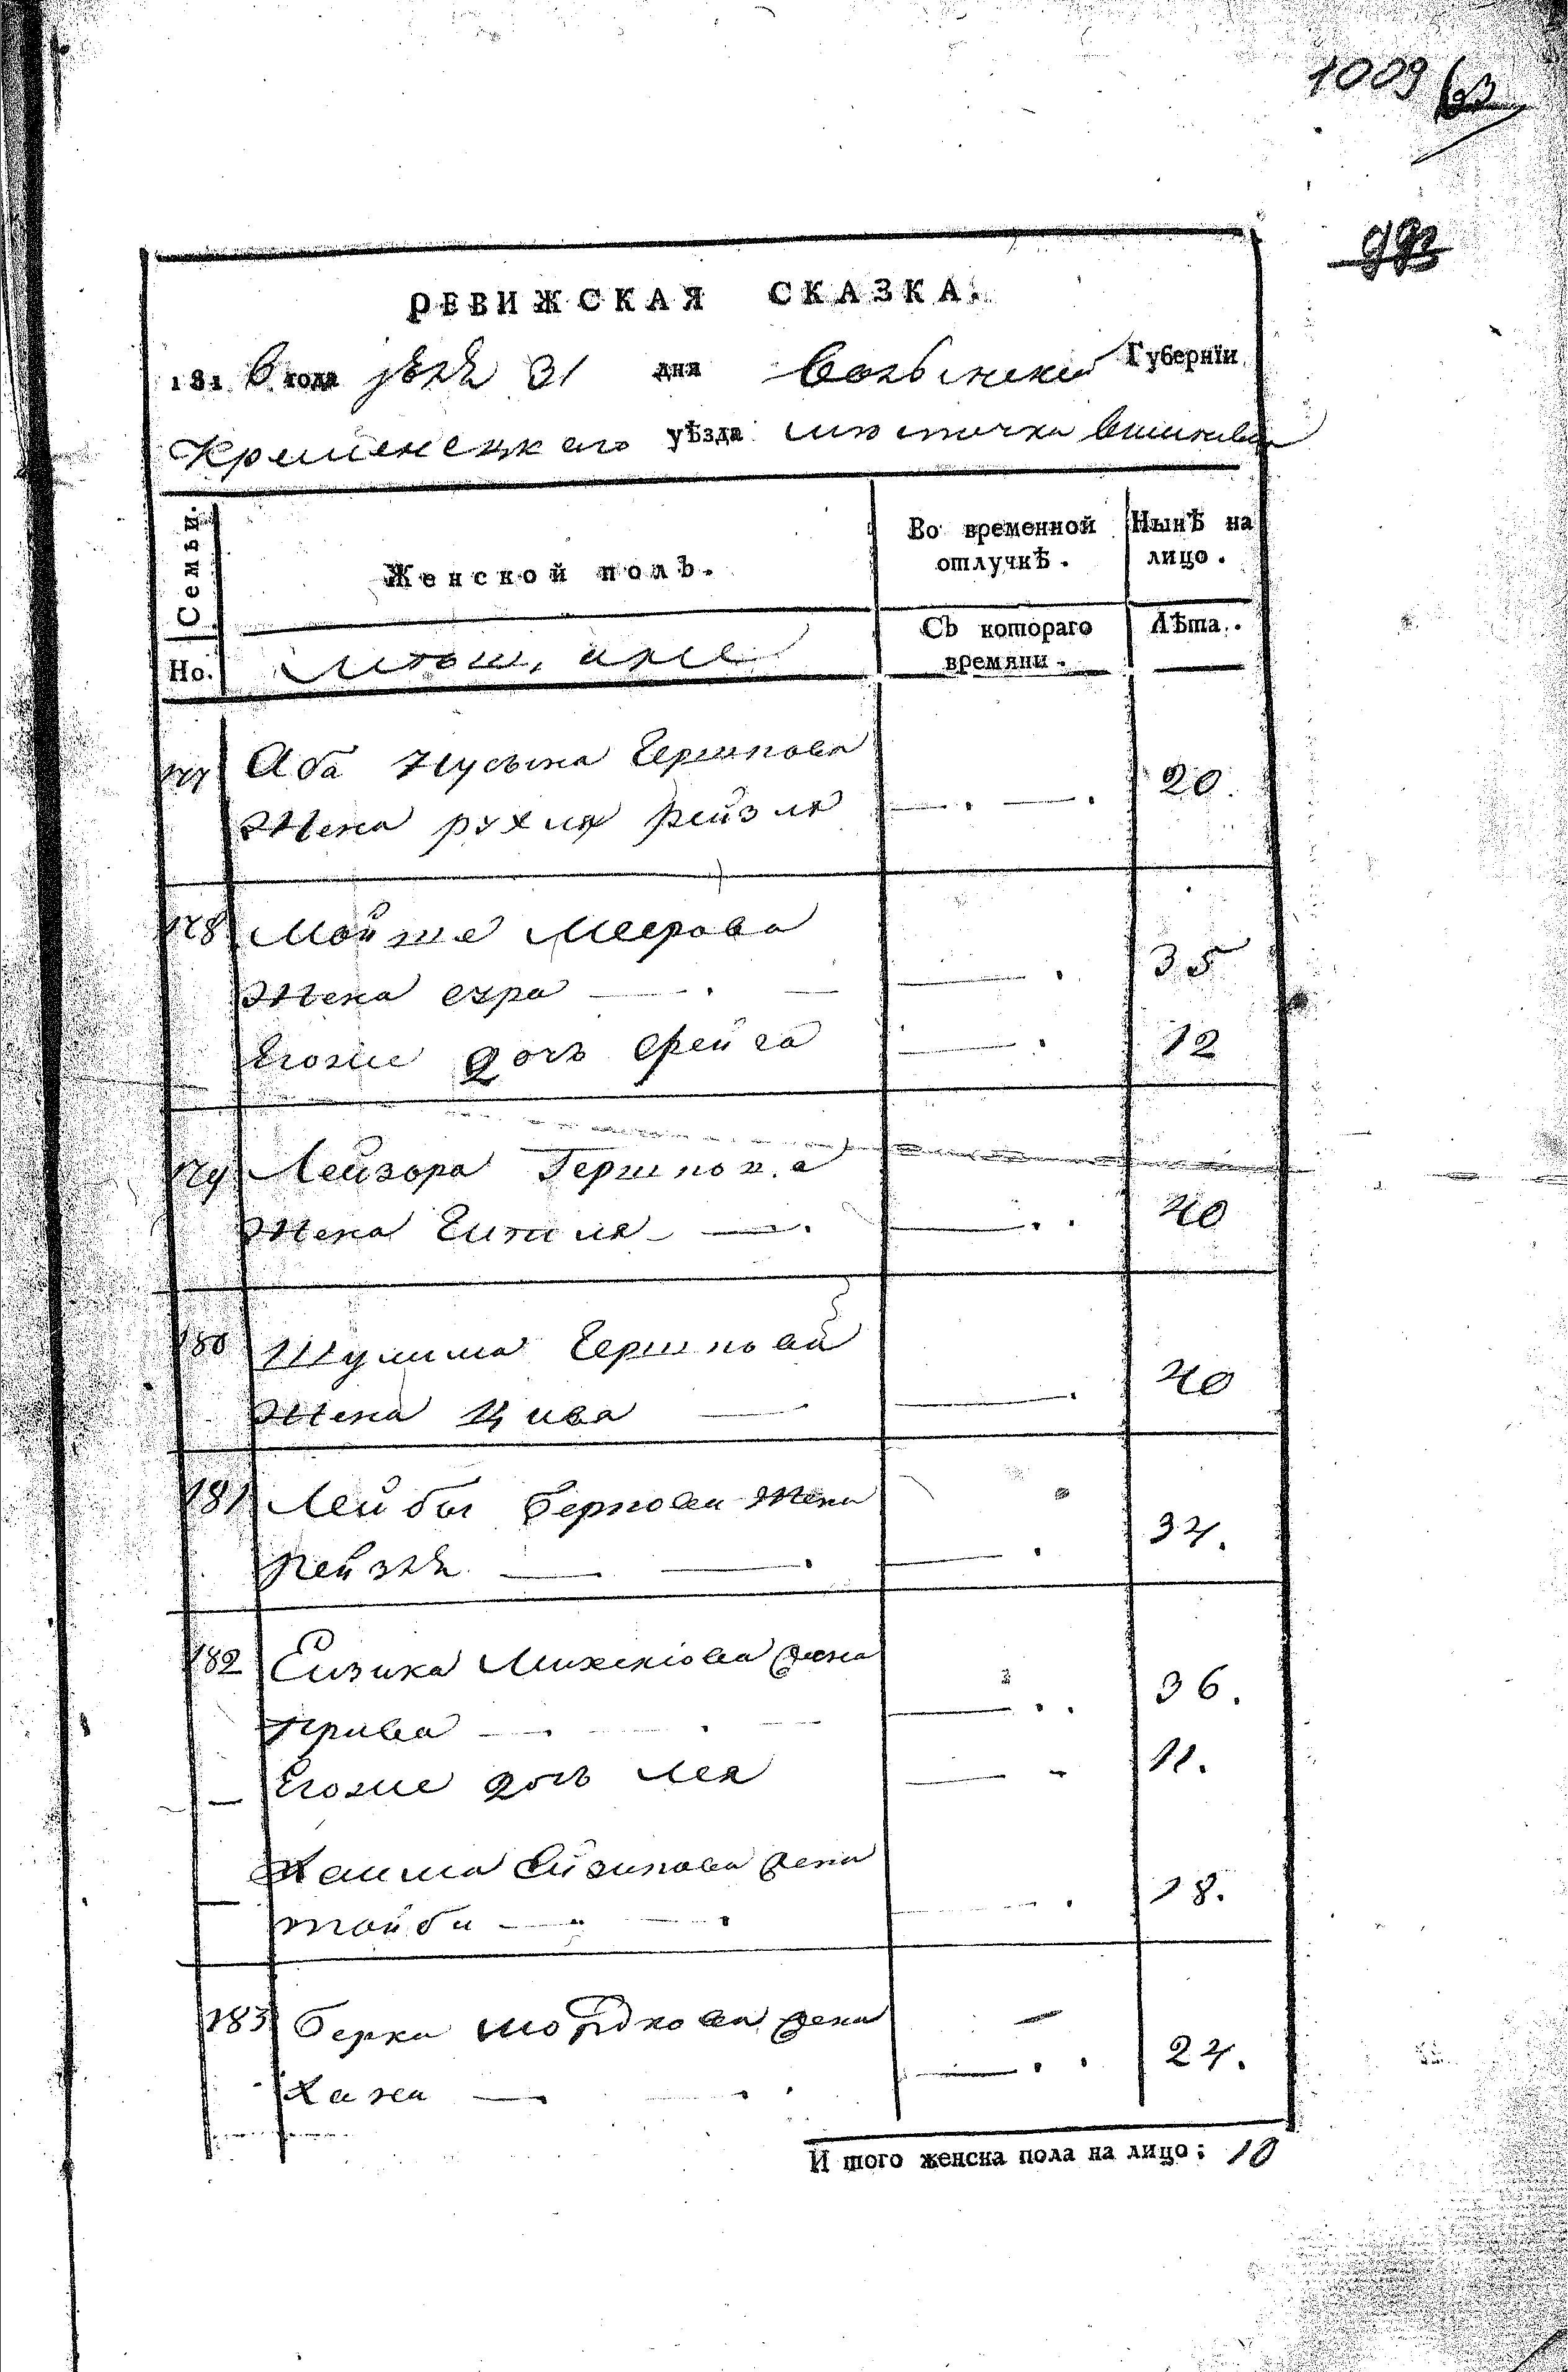 1009
993
РЕВИЖСКАЯ СКАЗКА.
1816 года 31 дня Волынской Губернїи
Кременецкаго уѣзда местечка Вишневца
Семьи.
Женской полъ.
Во временной отлучкѣ.
Нынѣ на лицо.
Но.
Съ котораго времяни.
Лѣта.
177 Аба Нусына Гершкова
Жена рухля рейзля 20.
178 Мойше Меерова
Жена сура 35
Егоже дочь Фейга 12
179 Лейзора Гершкова
Жена Гитля 40
180 Шулима Гершкова
Жена Цива 40
181 Лейбы Беркова Жена
Рейзя 34.
182 Ейзика жена
Крива 36.
Егоже дочь Лея 11.
Хаима Ейзикова жена
Тойба 18.
183 Берка Мордкова жена
Хана 24.
И того женска пола на лицо: 10